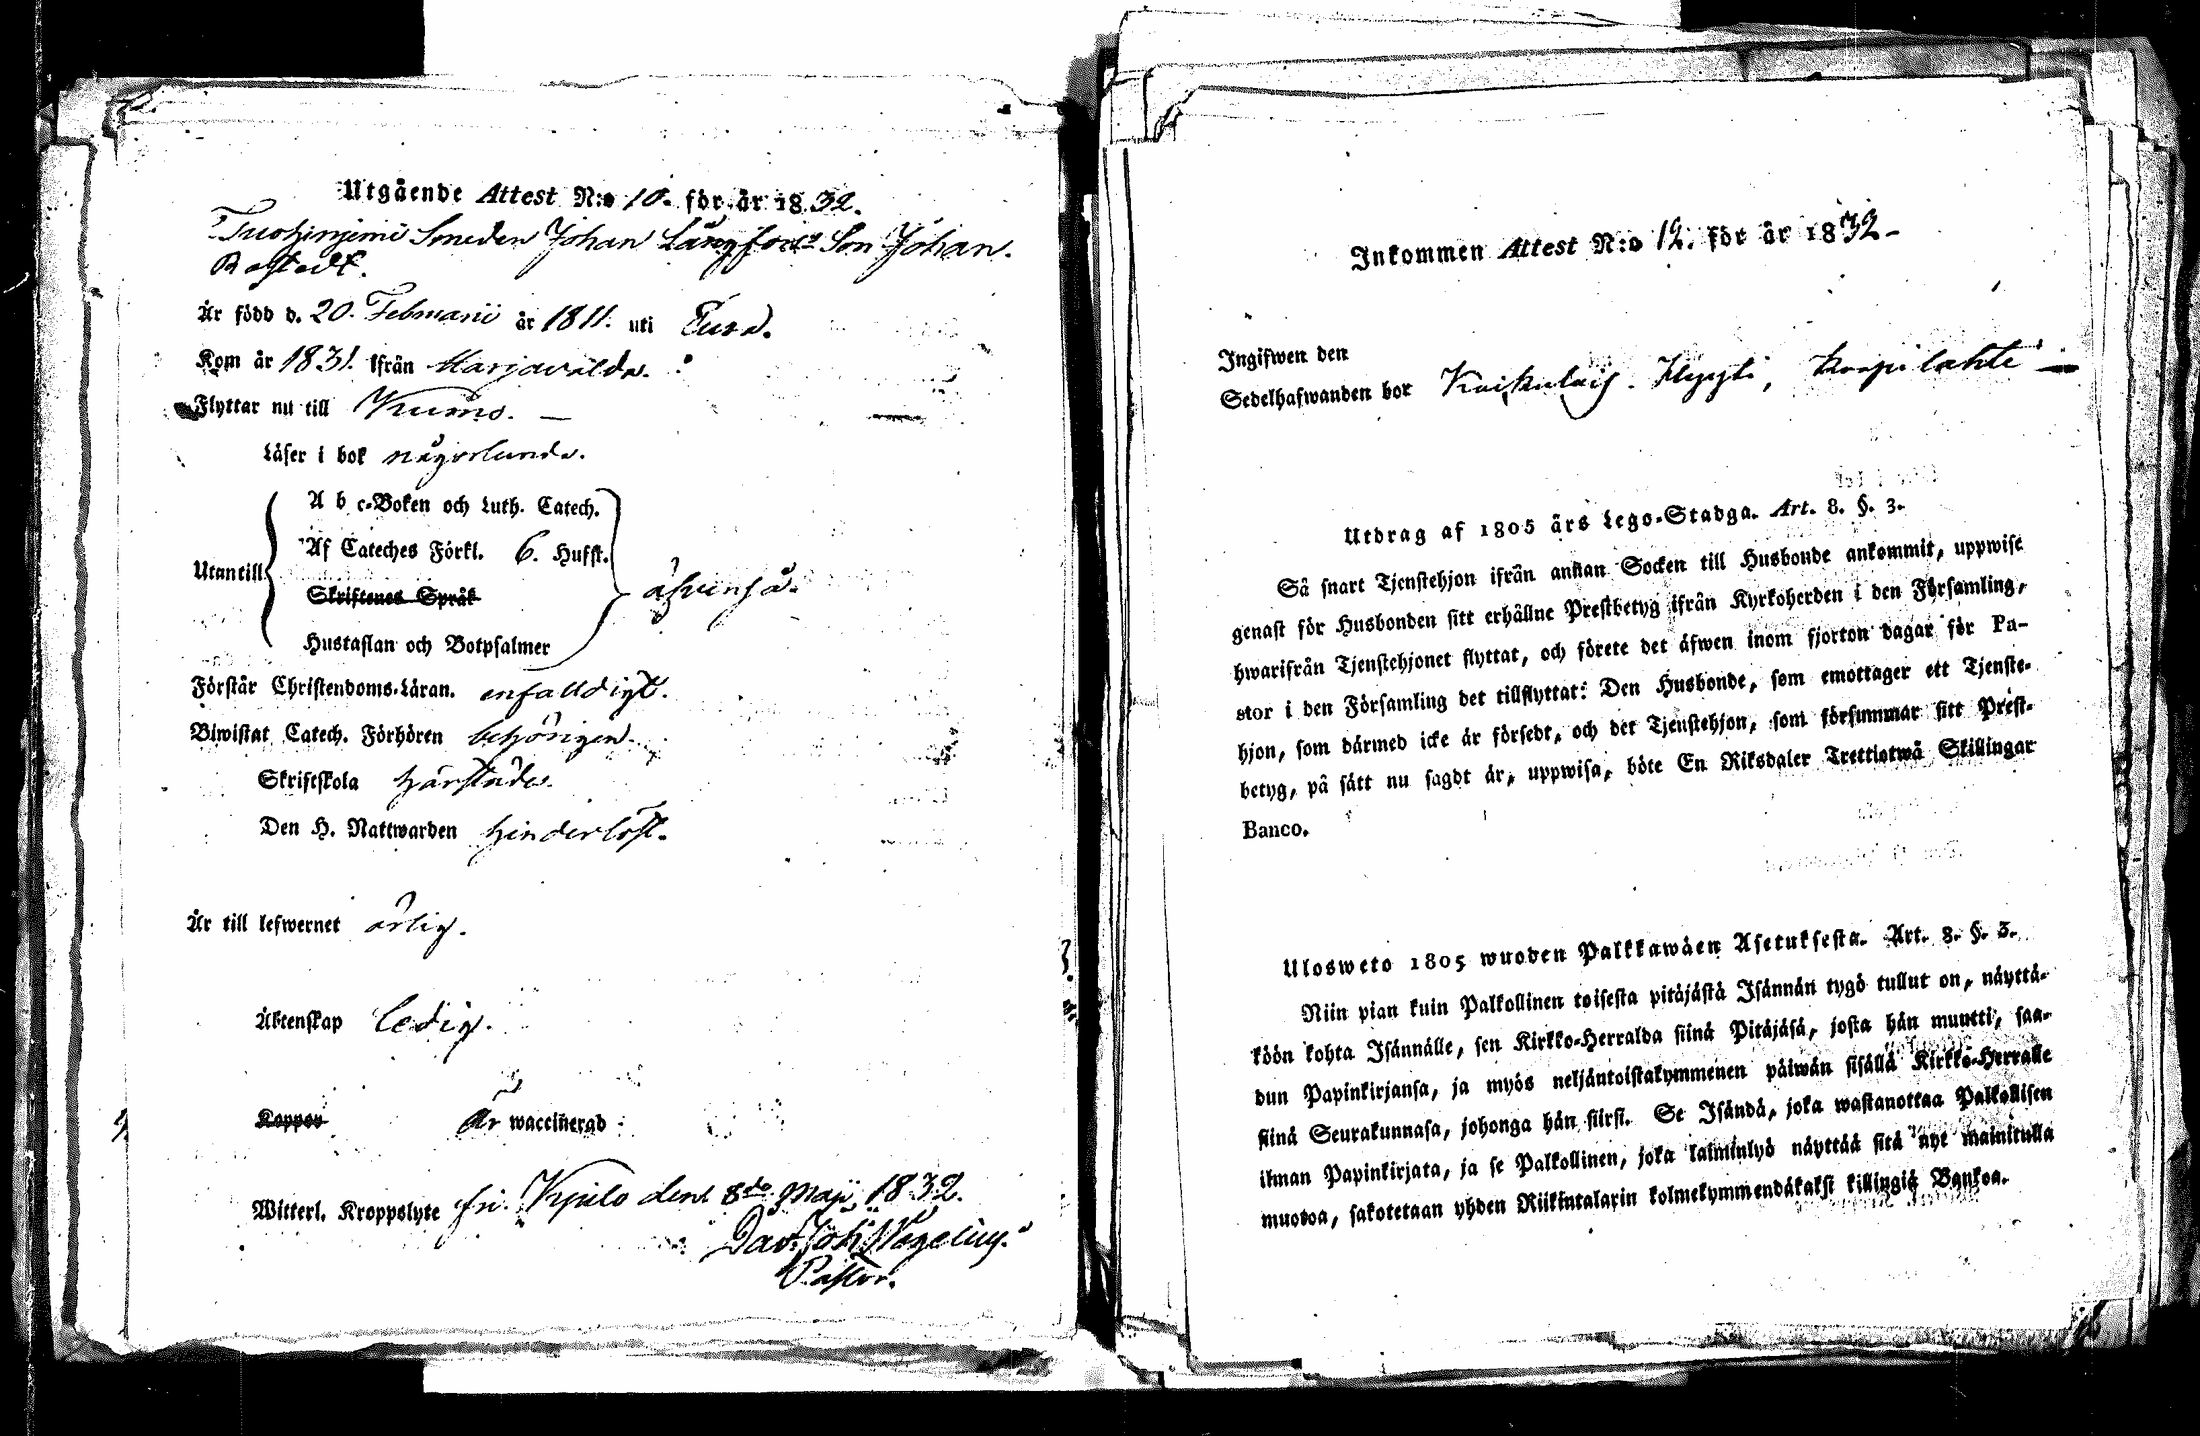 Utgående Attest N:o 10. för år 1832.
Smeden Johan Långfors Son Johan
Är född d. 20. Februarii år 1811. uti Eura.
Kom år 1831. ifrån Harjavalda.
Flyttar nu till Kumo. —
Läser i bok någorlunda.
A b c-Boken och Luth. Catech.
Af Cateches Förkl. 6. Hufst.
Utantill
Skriftenes Språk
äfvenså.
Hustaflan och Botpsalmer
Förstår Christendoms-Läran. enfalldigt.
Biwistat Catech. Förhören behörigen.
Skriftskola härstädes.
Den H. Nattwarden hinderlöst.
Är till lefwernet ärlig.
Äktenskap ledig.
Koppor Är waccinerad
Witterl. Kroppslyte fri. Kjulo den 8de Maji 1832.
Dav. Joh. Vägelius.
Pastor.
Inkommen Attest N:o 12. för år 1832-
Ingifwen den
Sedelhafwanden bor
Utdrag af 1805 års Lego-Stadga. Art. 8. §. 3.
Så snart Tjenstehjon ifrån annan Socken till Husbonde ankommit, uppwise
genast för Husbonden sitt erhållne Prestbetyg ifrån Kyrkoherden i den Församling,
hwarifrån Tjenstehjonet flyttat, och förete det äfwen inom fjorton dagar för Pa-
stor i den Församling det tillflyttat: Den Husbonde, som emottager ett Tjenste-
hjon, som därmed icke är försedt, och det Tjenstehjon, som försummar sitt Prest-
betyg, på sätt nu sagdt är, uppwisa, böte En Riksdaler Trettiotwå Skillingar
Banco.
Ulosweto 1805 wuoden Palkkawäen Asetuksesta. Art. 8. §. 3.
Niin pian kuin Palkollinen toisesta pitäjästä Isännän tygö tullut on, näyttä-
köön kohta Isännälle, sen Kirkko-Herralda siinä Pitäjäsä, josta hän muutti, saa-
dun Papinkirjansa, ja myös neljäntoistakymmenen päiwän sisällä Kirkko-Herralle
siinä Seurakunnasa, johonga hän siirsi. Se Isändä, joka wastanottaa Palkollisen
ilman Papinkirjata, ja se Palkollinen, joka laiminlyö näyttää sitä nyt mainitulla
muotoa, sakotetaan yhden Riikintalarin kolmekymmendäkaksi killingiä Bankoa.